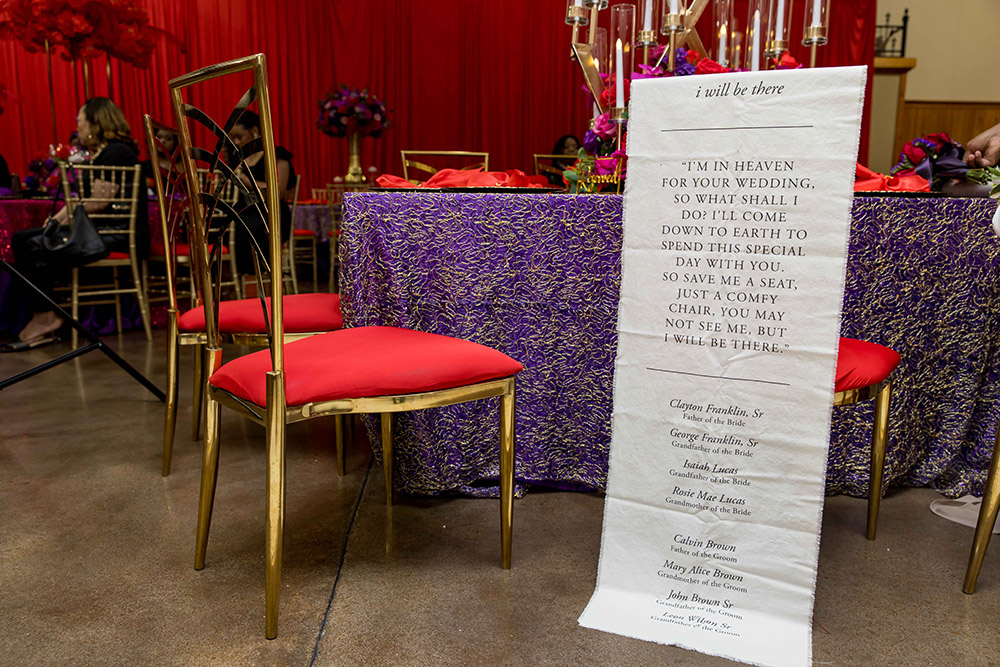 i will be there
"I'M IN HEAVEN
FOR YOUR WEDDING,
SO WHAT SHALL I
DO? I'LL COME
DOWN TO EARTH TO
SPEND THIS SPECIAL
DAY WITH YOU.
SO SAVE ME A SEAT,
JUST A COMFY
CHAIR, YOU MAY
NOT SEE ME, BUT
I WILL BE THERE."
Clayton Franklin, Sr
Father of the Bride
George Franklin, Sr
Grandfather of the Bride
Isaiah Lucas
Grandfather of the Bride
Rosie Mae Lucas
Grandmother of the Bride
Calvin Brown
Father of the Groom
Mary Alice Brown
Grandmother of the Groom
John Brown Sr
Grandfather of the Groom
Leon Wilson Sr
Grandfather of the Groom